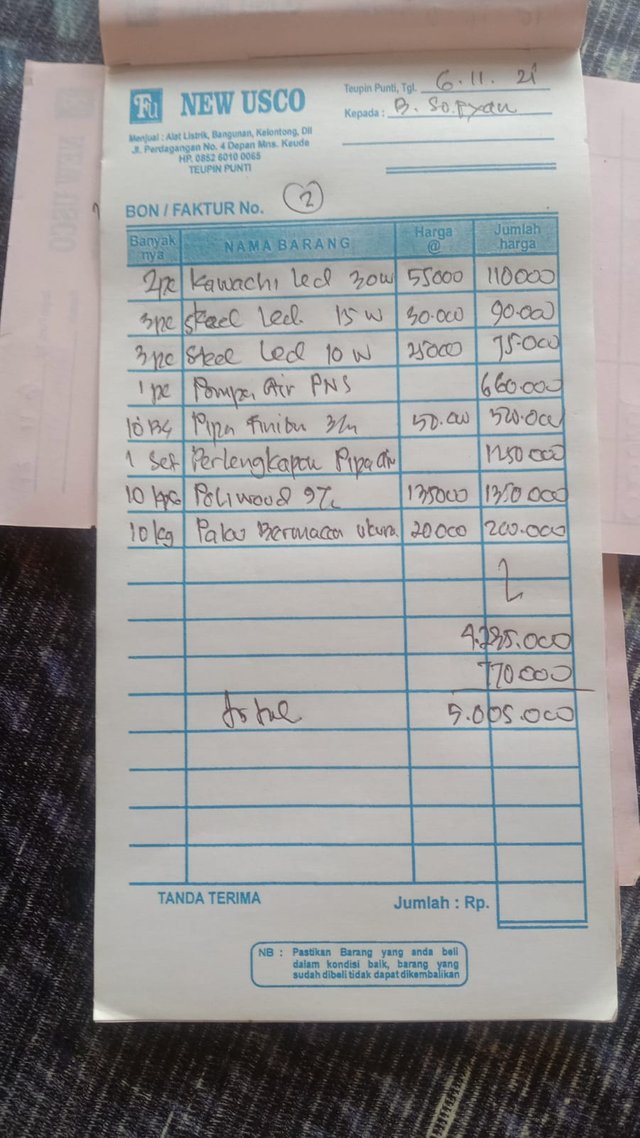 FU NEW USCO
Menjual : Alat Listrik, Bangunan, Kelontong, Dll
Jl. Perdagangan No. 4 Depan Mns. Keude
HP. 0852 6010 0065
TEUPIN PUNTI
Teupin Punti, Tgl. 6.11. 21
Kepada : B. Sopyan
BON / FAKTUR No. 2
Banyak nya NAMA BARANG Harga @ Jumlah harga
2pc Kawachi led 30w 55000 110000
3pc Led. 15 W 30.000 90.000
3pc Led 10 W 25000 75.000
1 pc Pompa Air PNS 660.000
10 Pipa 50.000 500.000
1 Set Perlengkapan Pipa air 1250000
10 Poliwood 135000 1350000
10 kg Paku Bermacam ukuran 20000 200.000
4.235.000
770.000
total 5.005.000
TANDA TERIMA Jumlah : Rp.
NB : Pastikan Barang yang anda beli
dalam kondisi baik, barang yang
sudah dibeli tidak dapat dikembalikan